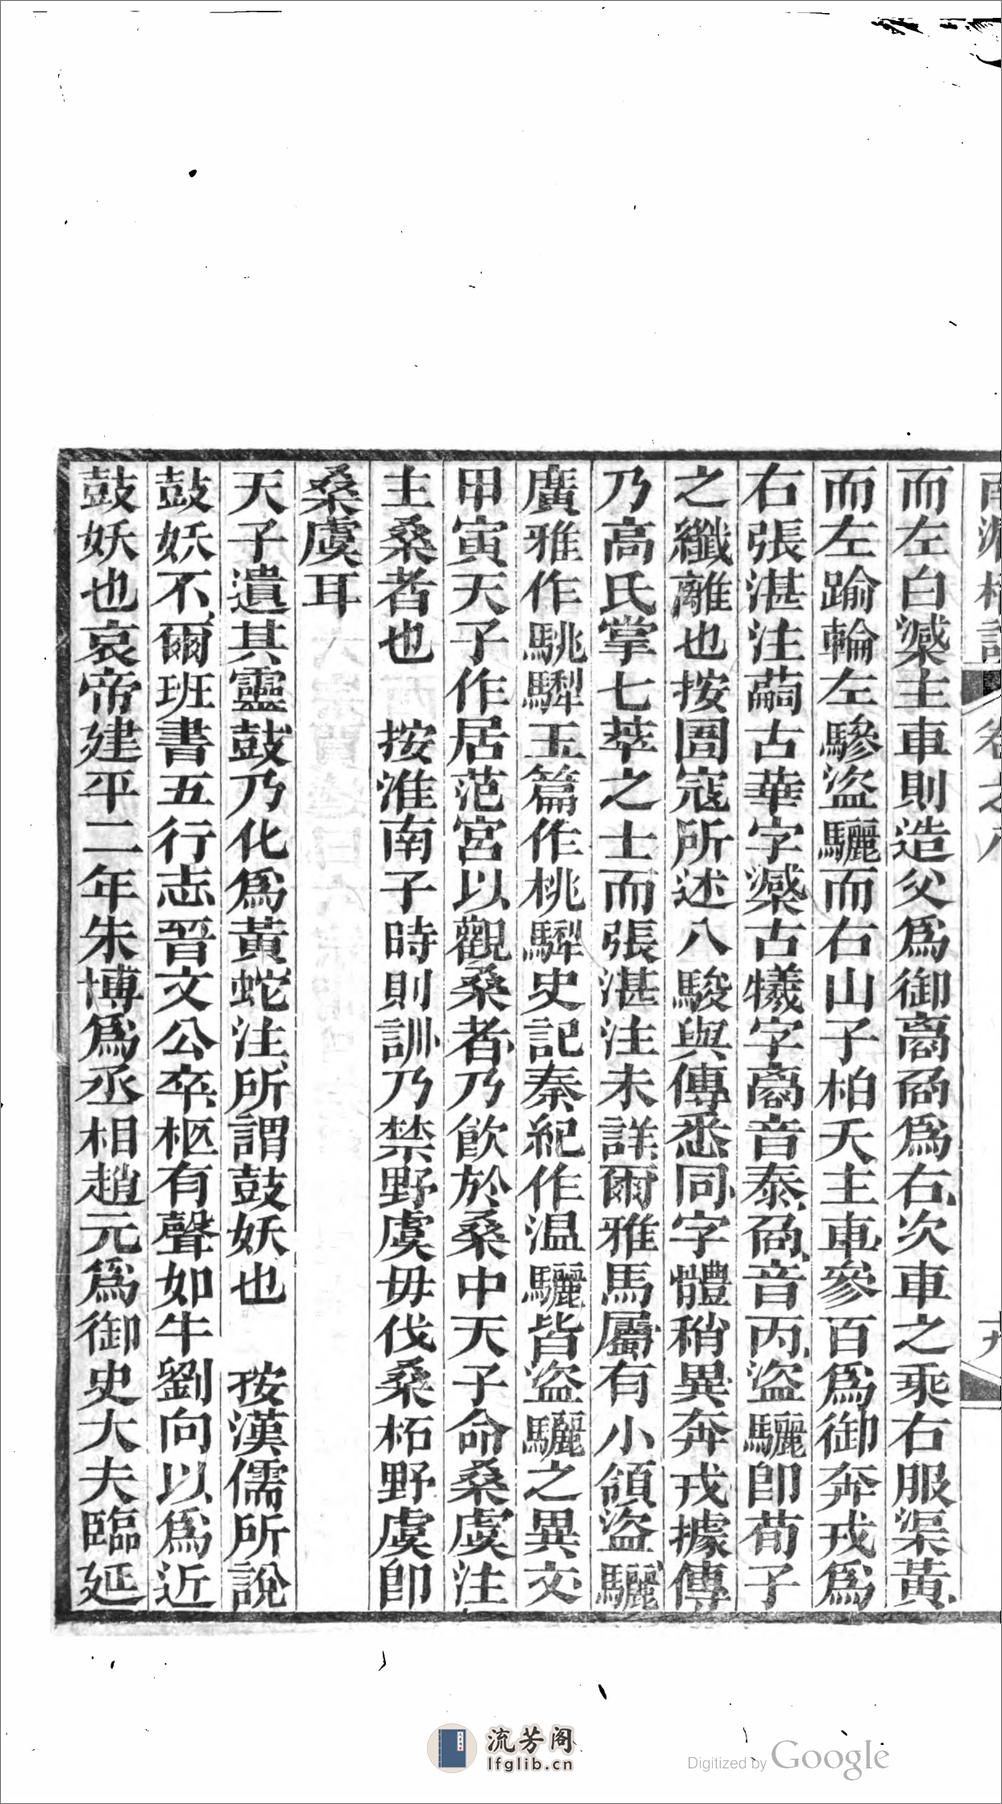 而左白㵂主車則造父爲御𧶠𠱷爲右次車之乘右服渠黃
而左踰輪左驂盜驪而右山子柏夭主車參百爲御奔戎爲
右張湛注𦽊古華字㵂古犧字𧶠音泰𠱷音丙盜驪即荀子
之纖離也按圄寇所述八駿與傳悉同字體稍異奔戎據傳
乃高氏掌七萃之士而張湛注未詳爾雅馬屬有小領盜驪
廣雅作駣䮫玉篇作桃䮫史記秦紀作温驪皆盜驪之異文
甲寅天子作居范宮以觀桑者乃飲於桑中天子命桑虞注
主桑者也　按淮南子時則訓乃禁野虞毋伐桑柘野虞即
桑虞耳
天子遺其靈鼓乃化爲黃蛇注所謂鼓妖也　按漢儒所說
鼓妖不爾班書五行志晉文公卒柩有聲如牛劉向以爲近
鼓妖也哀帝建平二年朱博爲丞相趙元爲御史大夫臨延
卷之八
十九
流芳阁
lfglib.cn
Digitized by Google